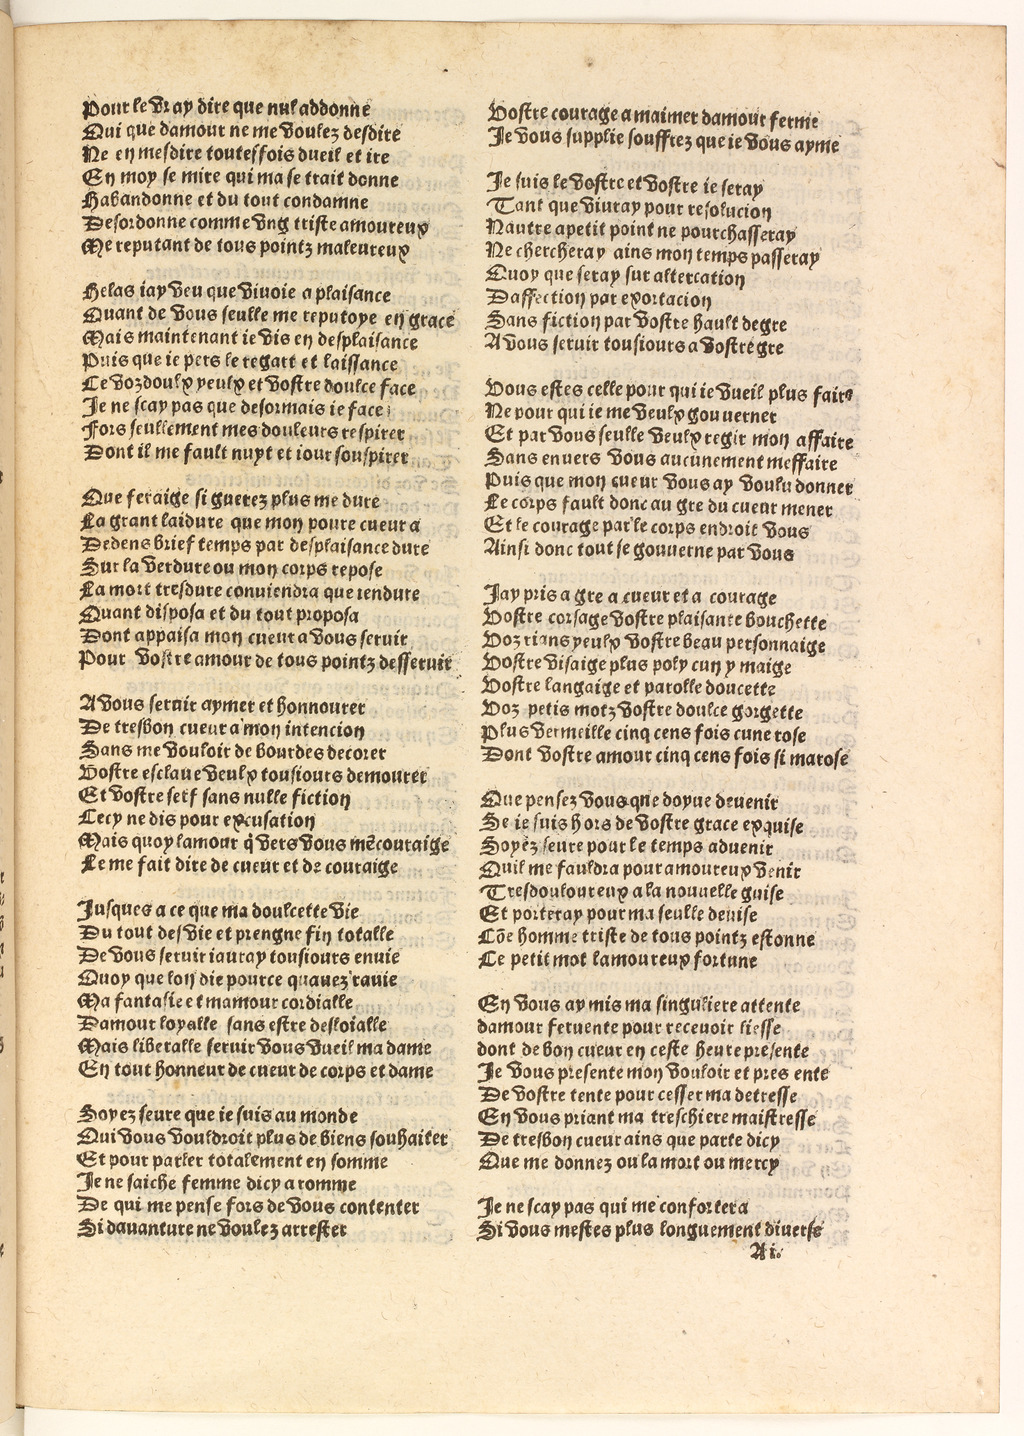 Pour le vray dire que nul addonne
Qui que damour ne me voulez desdire
Ne en mesdire toutesfois dueil et ire
En moy se mire qui ma se trait donne
Habandonne et du tout condamne
Desordonne comme vng triste amoureux
Me reputant de tous pointz maleureux
Helas iay veu que viuoie a plaisance
Quant de vous seulle me reputoye en grace
Mais maintenant ie vis en desplaisance
Puis que ie pers le regart et laissance
Ce voz doulx yeulx et vostre doulce face
Je ne scay pas que desormais ie face
Fors seullement mes douleurs respirer
Dont il me fault nuyt et iour souspirer
Que feraige si guerez plus me dure
La grant laidure que mon poure cueur a
Dedens brief temps par desplaisance dure
Sur la verdure ou mon corps repose
La mort tresdure conuiendra que iendure
Quant disposa et du tout proposa
Dont appaisa mon cueur a vous seruir
Pour vostre amour de tous pointz desseruir
A vous seruir aymer et honnourer
De tresbon cueur a mon intencion
Sans me vouloir de bourdes decorer
Vostre esclaue veulx tousiours demourer
Et vostre serf sans nulle fiction
Cecy ne dis pour excusation
Mais quoy lamour q̃ vers vous mẽcouraige
Le me fait dire de cueur et de couraige
Jusques a ce que ma doulcette vie
Du tout desvie et prengne fin totalle
De vous seruir iauray tousiours enuie
Quoy que lon die pource quauez rauie
Ma fantasie et mamour cordialle
Damour loyalle sans estre desloialle
Mais liberalle seruir vous vueil ma dame
En tout honneur de cueur de corps et dame
Soyez seure que ie suis au monde
Qui vous vouldroit plus de biens souhaiter
Et pour parler totalement en somme
Je ne saiche femme dicy a romme
De qui me pense fors de vous contenter
Si dauanture ne voulez arrester
Vostre courage a maimer damour ferme
Je vous supplie souffrez que ie vous ayme
Je suis le vostre et vostre ie seray
Tant que viuray pour resolucion
Nautre apetit point ne pourchasseray
Ne chercheray ains mon temps passeray
Quoy que seray sur altercation
Daffection par exortacion
Sans fiction par vostre hault degre
A vous seruir tousiours a vostre gre
Vous estes celle pour qui ie vueil plus faire
Ne pour qui ie me veulx gouuerner
Et par vous seulle veulx regir mon affaire
Sans enuers vous aucunement meffaire
Puis que mon cueur vous ay voulu donner
Le corps fault donc au gre du cueur mener
Et le courage par le corps endroit vous
Ainsi donc tout se gouuerne par vous
Jay pris a gre a cueur et a courage
Vostre corsage vostre plaisante bouchette
Voz rians yeulx vostre beau personnaige
Vostre visaige plus poly cun ymaige
Vostre langaige et parolle doucette
Voz petis motz vostre doulce gorgette
Plus vermeille cinq cens fois cune rose
Dont vostre amour cinq cens fois si marose
Que pensez vous que doyue deuenir
Se ie suis hors de vostre grace exquise
Soyez seure pour le temps aduenir
Quil me fauldra pour amoureux venir
Tresdouloureux a la nouuelle guise
Et porteray pour ma seulle deuise
Cõe homme triste de tous pointz estonne
Ce petit mot lamoureux fortune
En vous ay mis ma singuliere attente
damour feruente pour receuoir liesse
dont de bon cueur en ceste heure presente
Je vous presente mon vouloir et pres ente
De vostre tente pour cesser ma detresse
En vous priant ma treschiere maistresse
De tresbon cueur ains que parte dicy
Que me donnez ou la mort ou mercy
Je ne scay pas qui me confortera
Si vous mestes plus longuement diuerse
Ai.